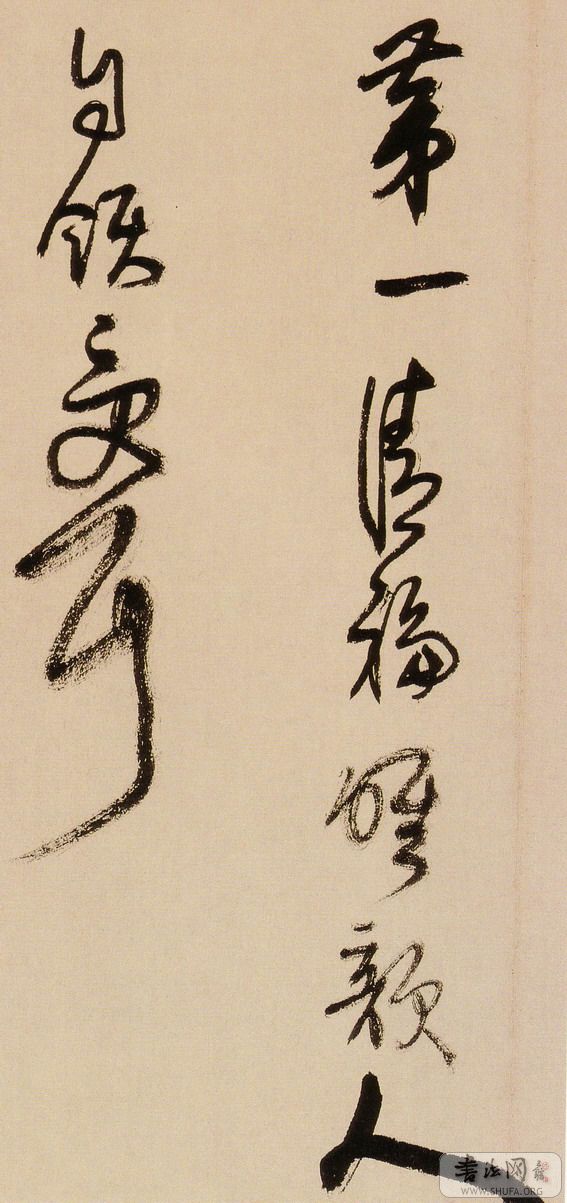 第一清福惟韻人
自領受耳
书法网
WWW.SHUFA.ORG